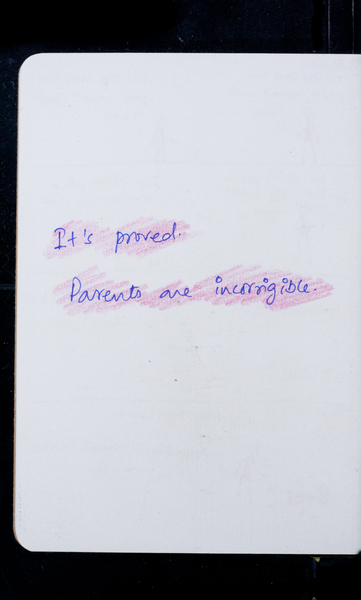 It's proved.
Parents are incorrigible.